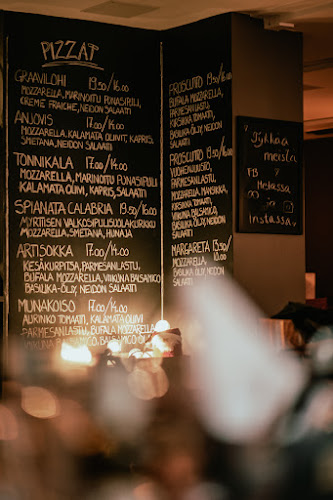 PIZZAT
GRAAVILOHI 19.50/16.00
MOZZARELLA, MARINOITU PUNASIPULI,
CREME FRAICHE, NEIDON SALAATTI
ANJOVIS 17.00/14.00
MOZZARELLA, KALAMATA OLIIVIT, KAPRIS,
SMETANA, NEIDON SALAATTI
TONNIKALA 17.00/14.00
MOZZARELLA, MARINOITU PUNASIPULI
KALAMATA OLIIVI, KAPRIS, SALAATTI
SPIANATA CALABRIA 19.50/16.00
MYRTISEN VALKOSIPULISUOLAKURKKU
MOZZARELLA, SMETANA, HUNAJA
ARTISOKKA 17.00/14.00
KESÄKURPITSA, PARMESANLASTU,
BUFALA MOZZARELLA, VIIKUNA BALSAMICO
BASILIKA-ÖLJY, NEIDON SALAATTI
MUNAKOISO 17.00/14.00
AURINKO TOMAATTI, KALAMATA OLIIVI
PARMESANLASTU, BUFALA MOZZARELLA
VIIKUNA BALSAMICO, BASILIKA-ÖLJY
PROSCIUTTO 19.50/16.00
BUFALA MOZZARELLA
PARMESANLASTU,
KIRSIKKA TOMAATTI,
BASILIKA-
ÖLJY, NEIDON
SALAATTI
PROSCIUTTO
PARMESANLASTU,
MOZZARELLA, MANSIKKA,
VIIKUNA BALSAMICO,
NEIDON
SALAATTI
MARGARETA 13.50
MOZZARELLA,
BASILIKA ÖLJY, NEIDON
SALAATTI
Tykkää
meistä
FB
Metassa
ja
Instassa